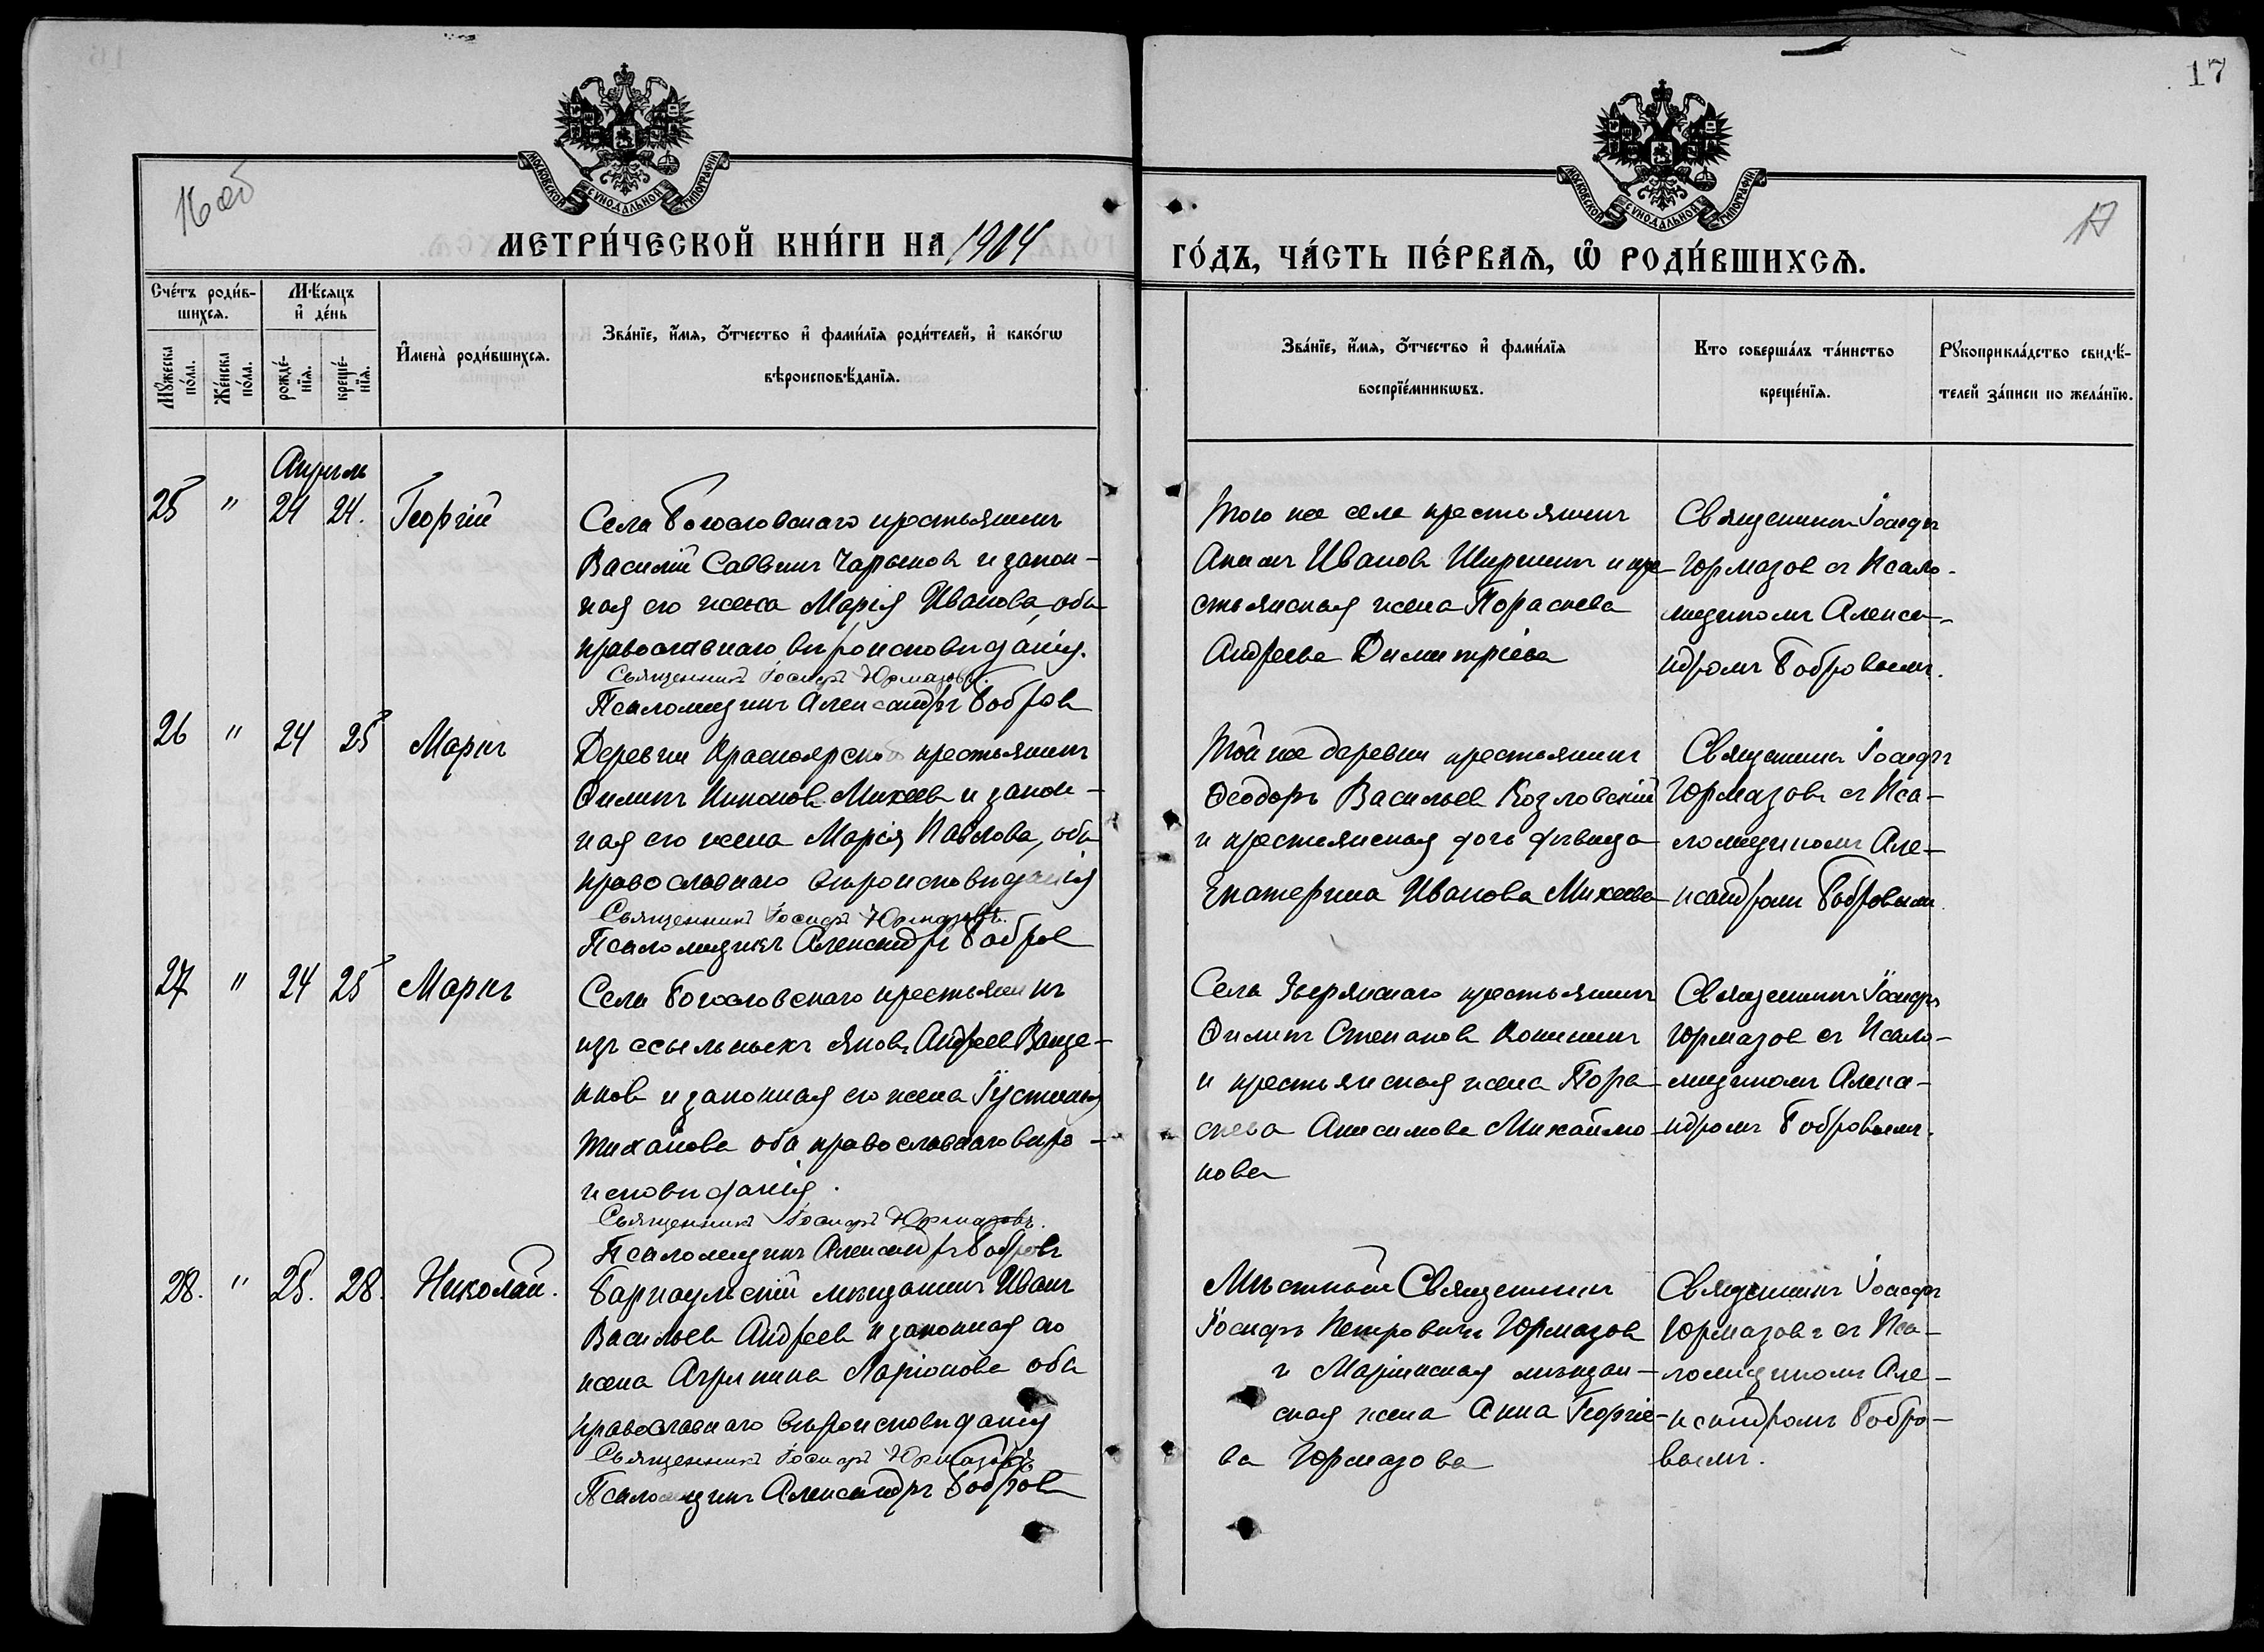 17
16 об
17
МОСКОВСКОЙ СѴНОДАЛЬНОЙ ТИПОГРАФІИ
МОСКОВСКОЙ СѴНОДАЛЬНОЙ ТИПОГРАФІИ
МЕТРИ́ЧЕСКОЙ КНИ́ГИ НА 1904
ГО́ДЪ, ЧА́СТЬ ПЕ́РВАѦ, Ѡ҆ РОДИ́ВШИХСѦ.
Сче́тъ роди́в-
шихсѧ.
Мѣ́сяцъ
и҆ де́нь
Мꙋ́жеска
по́ла.
Же́нска
по́ла.
рожде́-
нїѧ.
креще́-
нїѧ.
И҆мена̀ роди́вшихсѧ.
Зва́нїе, и҆́мѧ, ѻ҆́тчество и҆ фами́лїѧ роди́телей, и҆ како́гѡ
вѣроисповѣ́данїѧ.
Зва́нїе, и҆́мѧ, ѻ҆́тчество и҆ фами́лїѧ
воспрїе́мникѡвъ.
Кто соверша́лъ та́инство
креще́нїѧ.
Рꙋкоприкла́дство свидѣ́-
телей за́писи по жела́нїю.
Апрѣль
25 " 24 24. Георгій
Села Богословскаго крестьянинъ
Василій Саввинъ Чарыков и закон-
ная его жена Марія Иванова, оба
православнаго вѣроисповѣданія.
Священникъ Іосифъ Юрмазовъ.
Псаломщикъ Александръ Бобров
Того же села крестьянинъ
Иванов Ширшин и кре-
стьянская жена Параскева
Андреева Димитріева
Священникъ Іосифъ
Юрмазов съ Псало-
мщикомъ Алекса-
ндромъ Бобровымъ.
26 " 24 25 Маркъ
Деревни Красноярской крестьянинъ
Филипъ Никонов Михеев и закон-
ная его жена Марія Павлова, оба
православнаго вѣроисповѣданія
Священникъ Іосифъ Юрмазовъ.
Псаломщикъ Александръ Бобров
Той же деревни крестьянинъ
Ѳеодоръ Васильев Козловскій
и крестьянская дочь дѣвица
Екатерина Иванова Михеева
Священникъ Іосифъ
Юрмазовъ съ Пса-
ломщикомъ Але-
ксандромъ Бобровым
27 " 24 25 Маркъ
Села Богословскаго крестьянинъ
изъ ссыльныхъ Яковъ Андреев Ваще-
нков и законная его жена Іустинья
Тиханова оба православнаго вѣро-
исповѣданія.
Священникъ Іосифъ Юрмазовъ.
Псаломщикъ Александръ Бобровъ
Села Зырянскаго крестьянинъ
Филипъ Степанов Конинин
и крестьянская жена Пара-
скева Анисимова Михайло-
нова
Священникъ Іосифъ
Юрмазов съ Псало-
мщикомъ Алекса-
ндромъ Бобровымъ.
28. " 25. 28. Николай.
Барнаульскій мѣщанинъ Иванъ
Васильев Андреев и законная его
жена Агрипина Ларіонова оба
православнаго вѣроисповѣданія
Священникъ Іосифъ Юрмазовъ
Псаломщикъ Александръ Бобров
Мѣстный Священник
Іосифъ Петровичъ Юрмазов
и Маріинская мѣщан-
ская жена Анна Георгіе-
ва Юрмазова
Священникъ Іосифъ
Юрмазовъ съ Пса-
ломщикомъ Але-
ксандромъ Бобро-
вымъ.